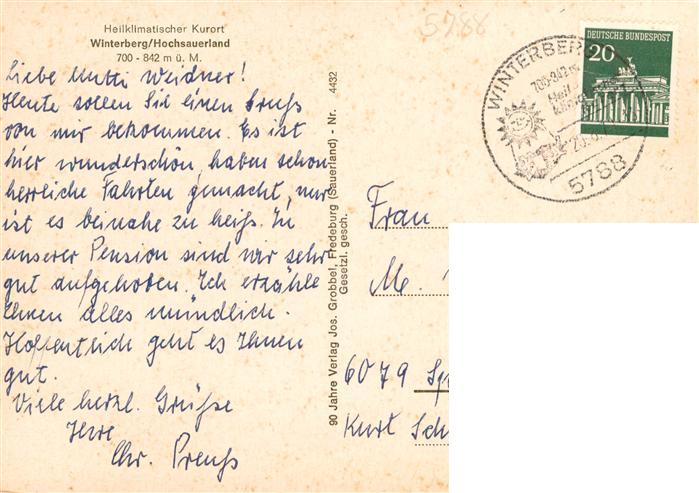 5788
Heilklimatischer Kurort
Winterberg/Hochsauerland
700 - 842 m ü. M.
Liebe Mutti Weidner!
Heute sollen Sie einen Gruß
von mir bekommen. Es ist
hier wunderschön, haben schon
herrliche Fahrten gemacht, nur
ist es beinahe zu heiß. In
unserer Pension sind wir sehr
gut aufgehoben. Ich erzähle
Ihnen alles mündlich.
Hoffentlich geht es Ihnen
gut.
Viele herzl. Grüße
Ihre
Chr. Preuß
90 Jahre Verlag Jos. Grobbel, Fredeburg (Sauerland) - Nr. 4432
Gesetzl. gesch.
DEUTSCHE BUNDESPOST
20
WINTERBER
700-842 m
5788
Frau
M.
6079 Sp
Kurt Sch